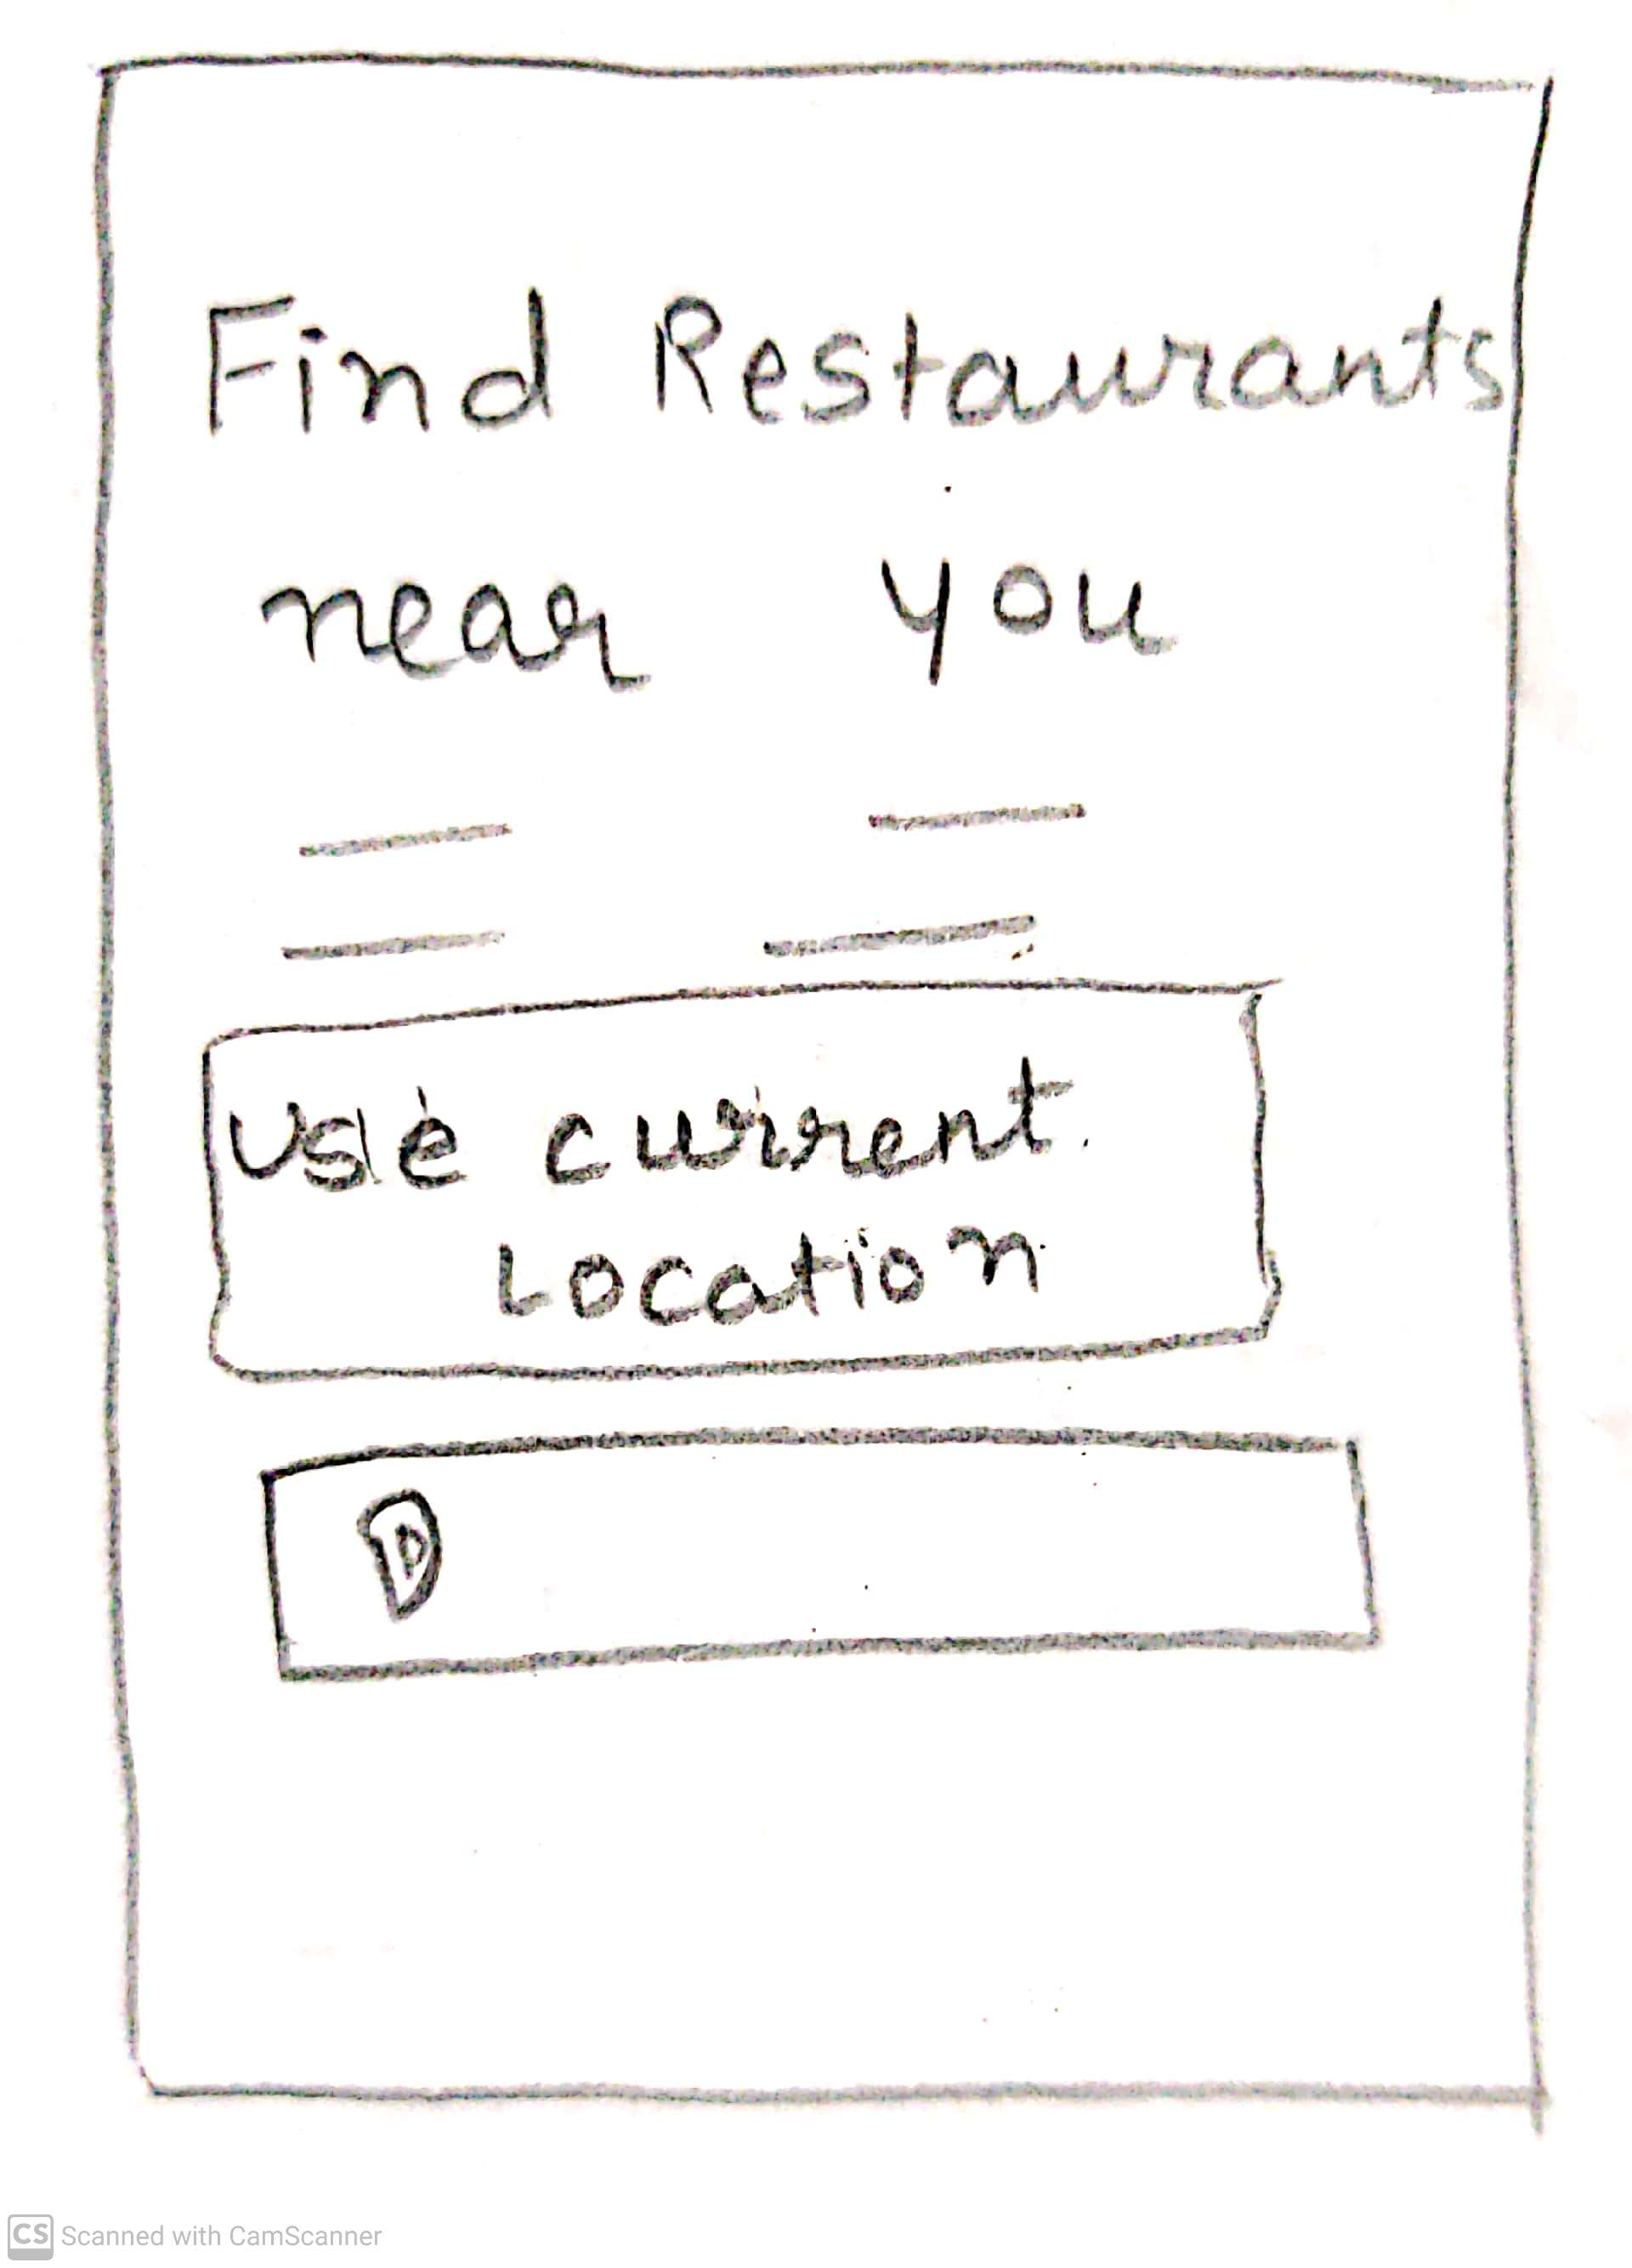 Find Restaurants
near you
Use current
Location
CS Scanned with CamScanner